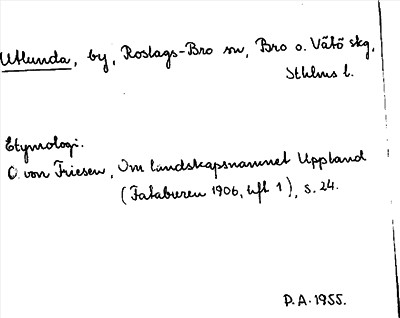 Utlunda, by, Roslags-Bro sn, Bro o. Vätö skg,
Sthlms l.
Etymologi.
O. von Friesen, Om landskapsnamnet Uppland
(Fataburen 1906, hft 1), s. 24.
P.A. 1955.